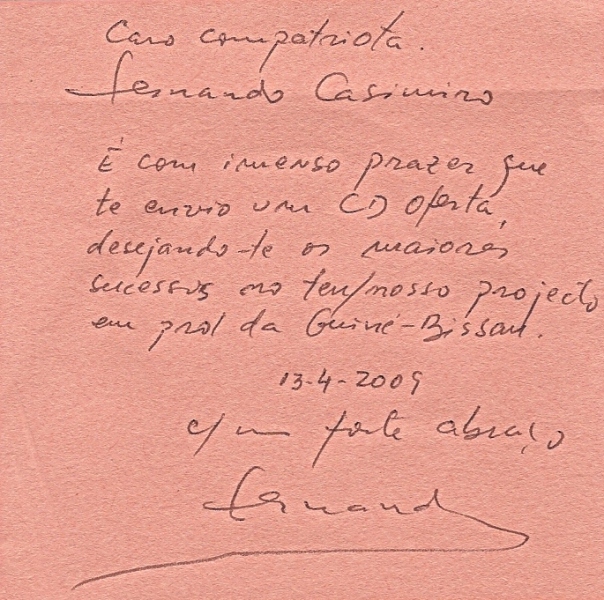 Caro compatriota.
Fernando Casimiro
É com imenso prazer que
te envio um CD Oferta,
desejando-te os maiores
sucessos no teu/nosso projecto
em prol da Guiné-Bissau.
13-4-2009
c/ um forte abraço
Fernand